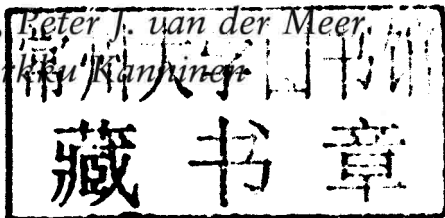 Peter J. van der Meer
rkku Kanninen
常州大学图书馆
藏书章